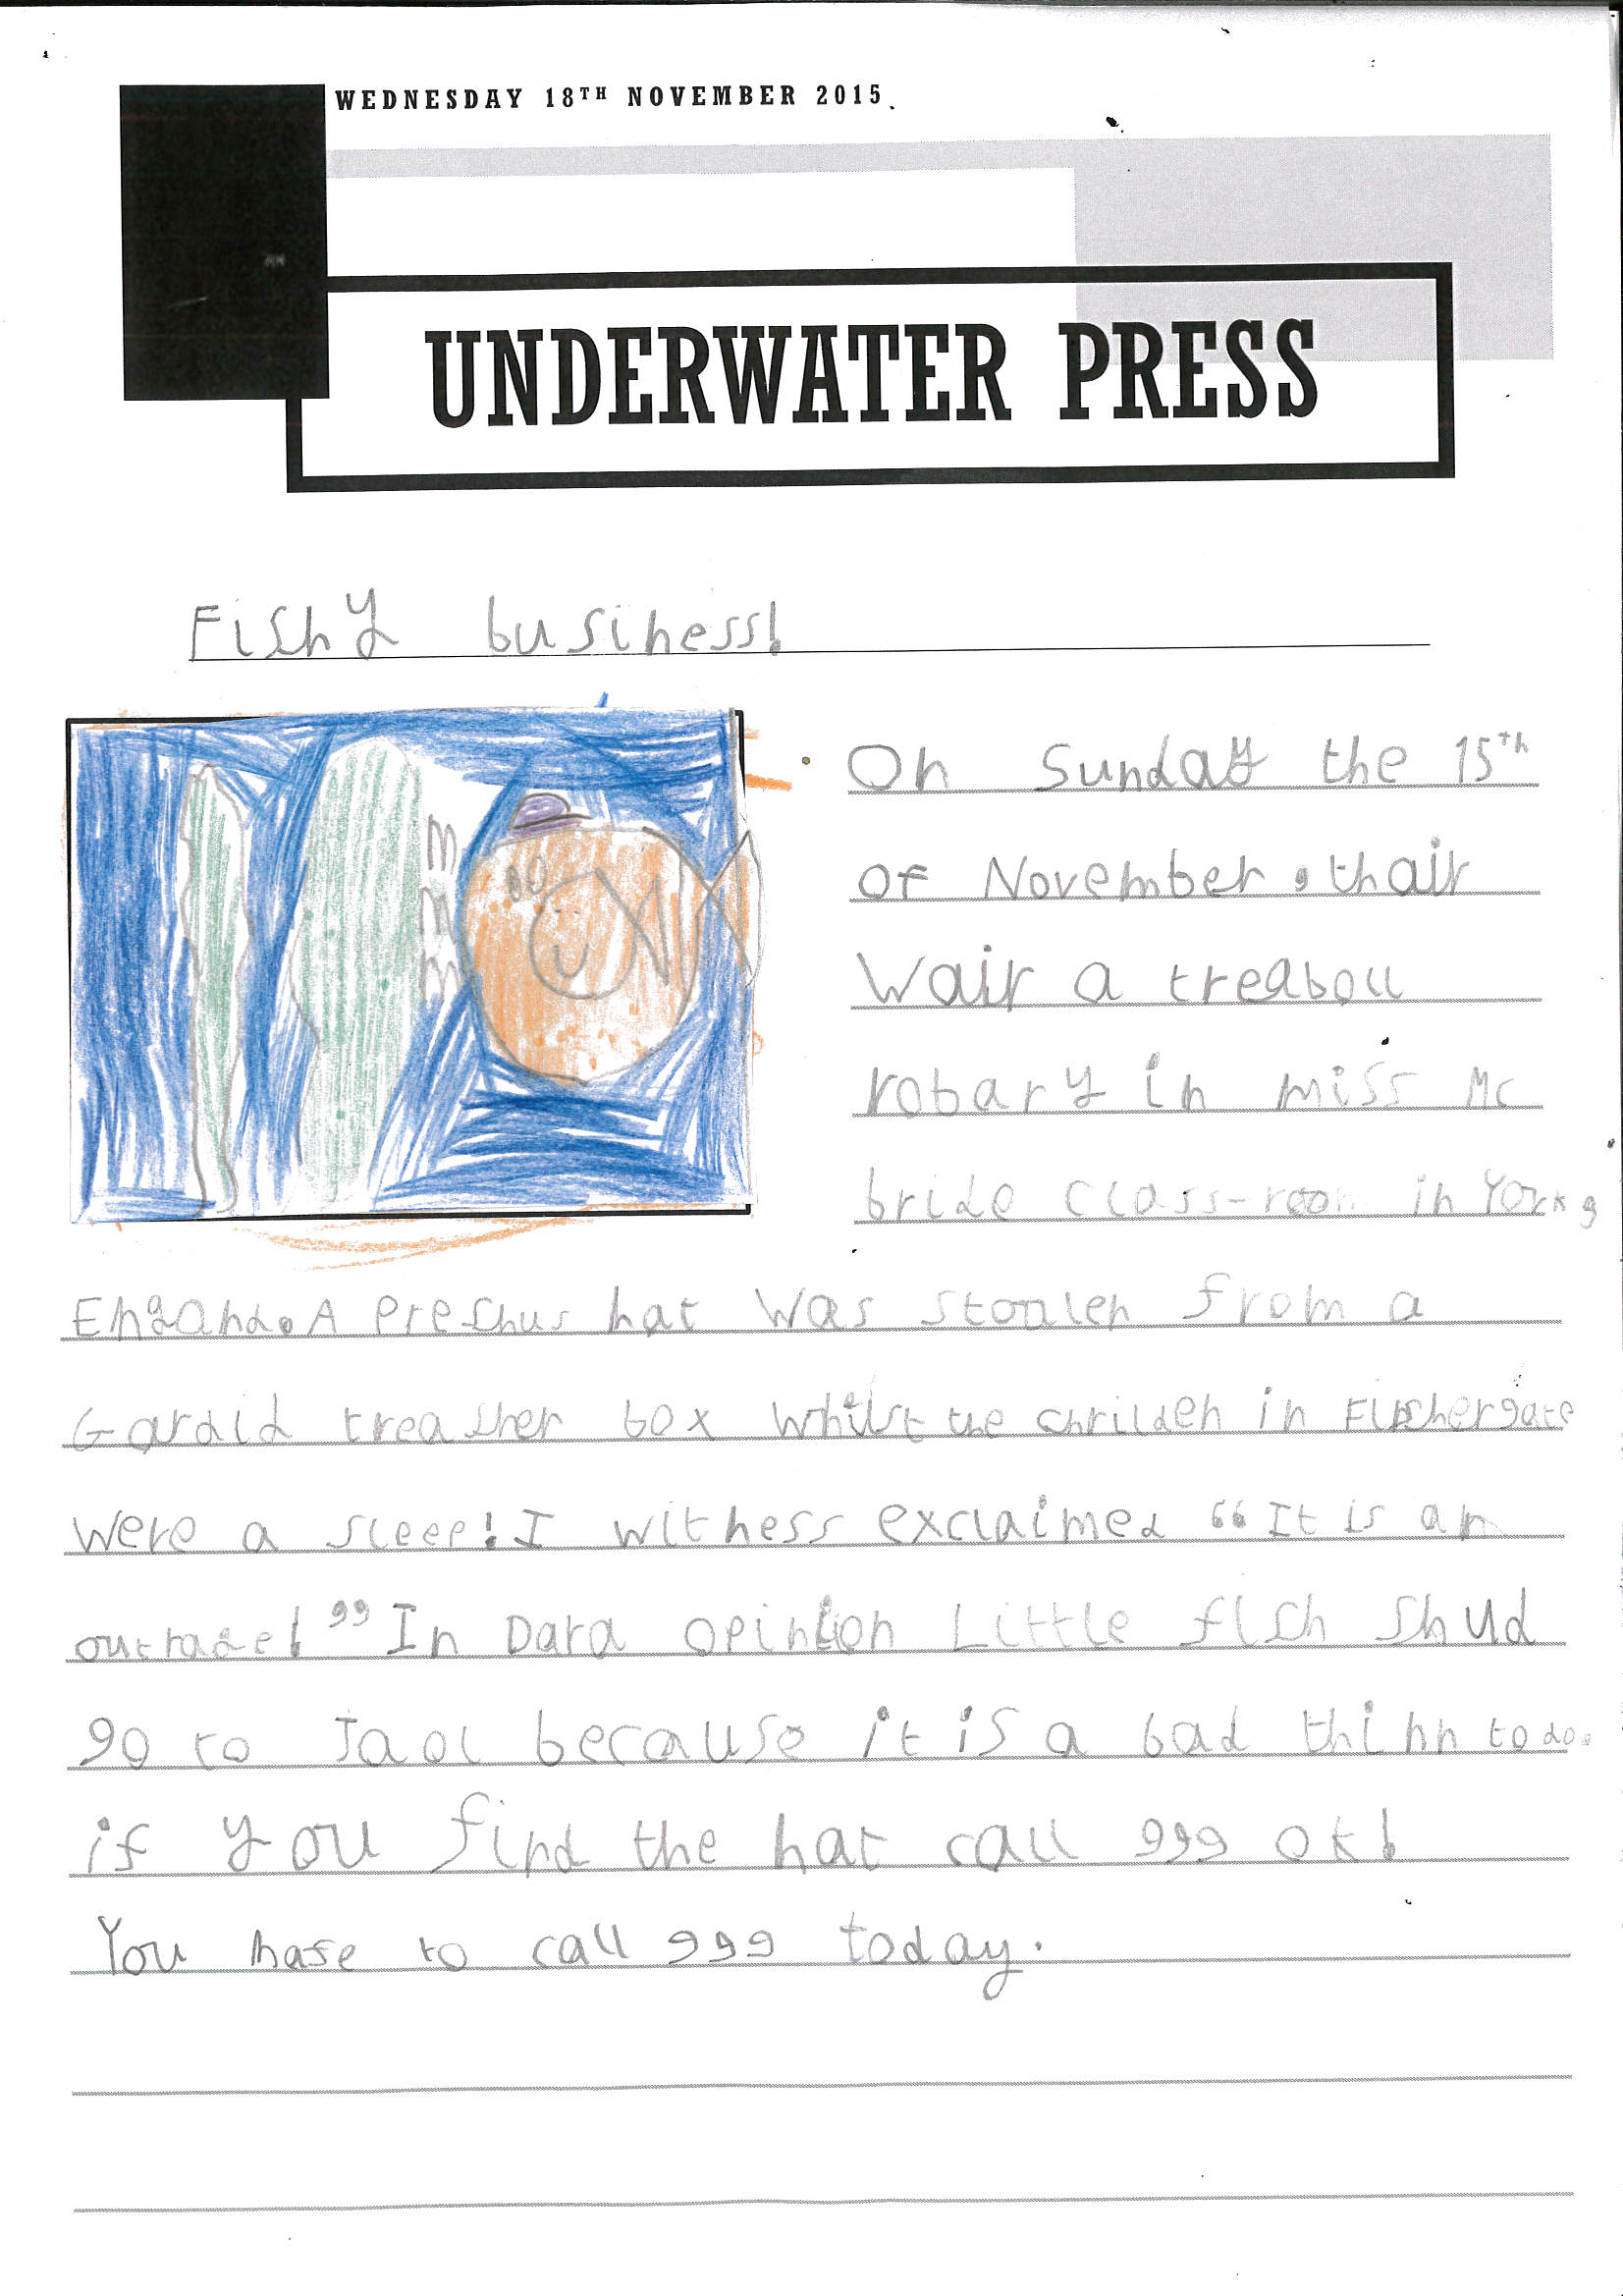 WEDNESDAY 18TH NOVEMBER 2015.
UNDERWATER PRESS
Fishy business!
On Sunday the 15th
of November, thair
wair a treabou
robary in miss Mc
bride class-room in York,
Engand. A preshus hat was stoalen from a
Gardid treasher box whilst the chrilden in Fishergate
were a sleep! I witness exclaimed "It is an
outrage!" In Dara opinion Little fish shud
go to Jaol because it is a bad thinn to do.
if you find the hat call 999 ok!
You hase to call 999 today.